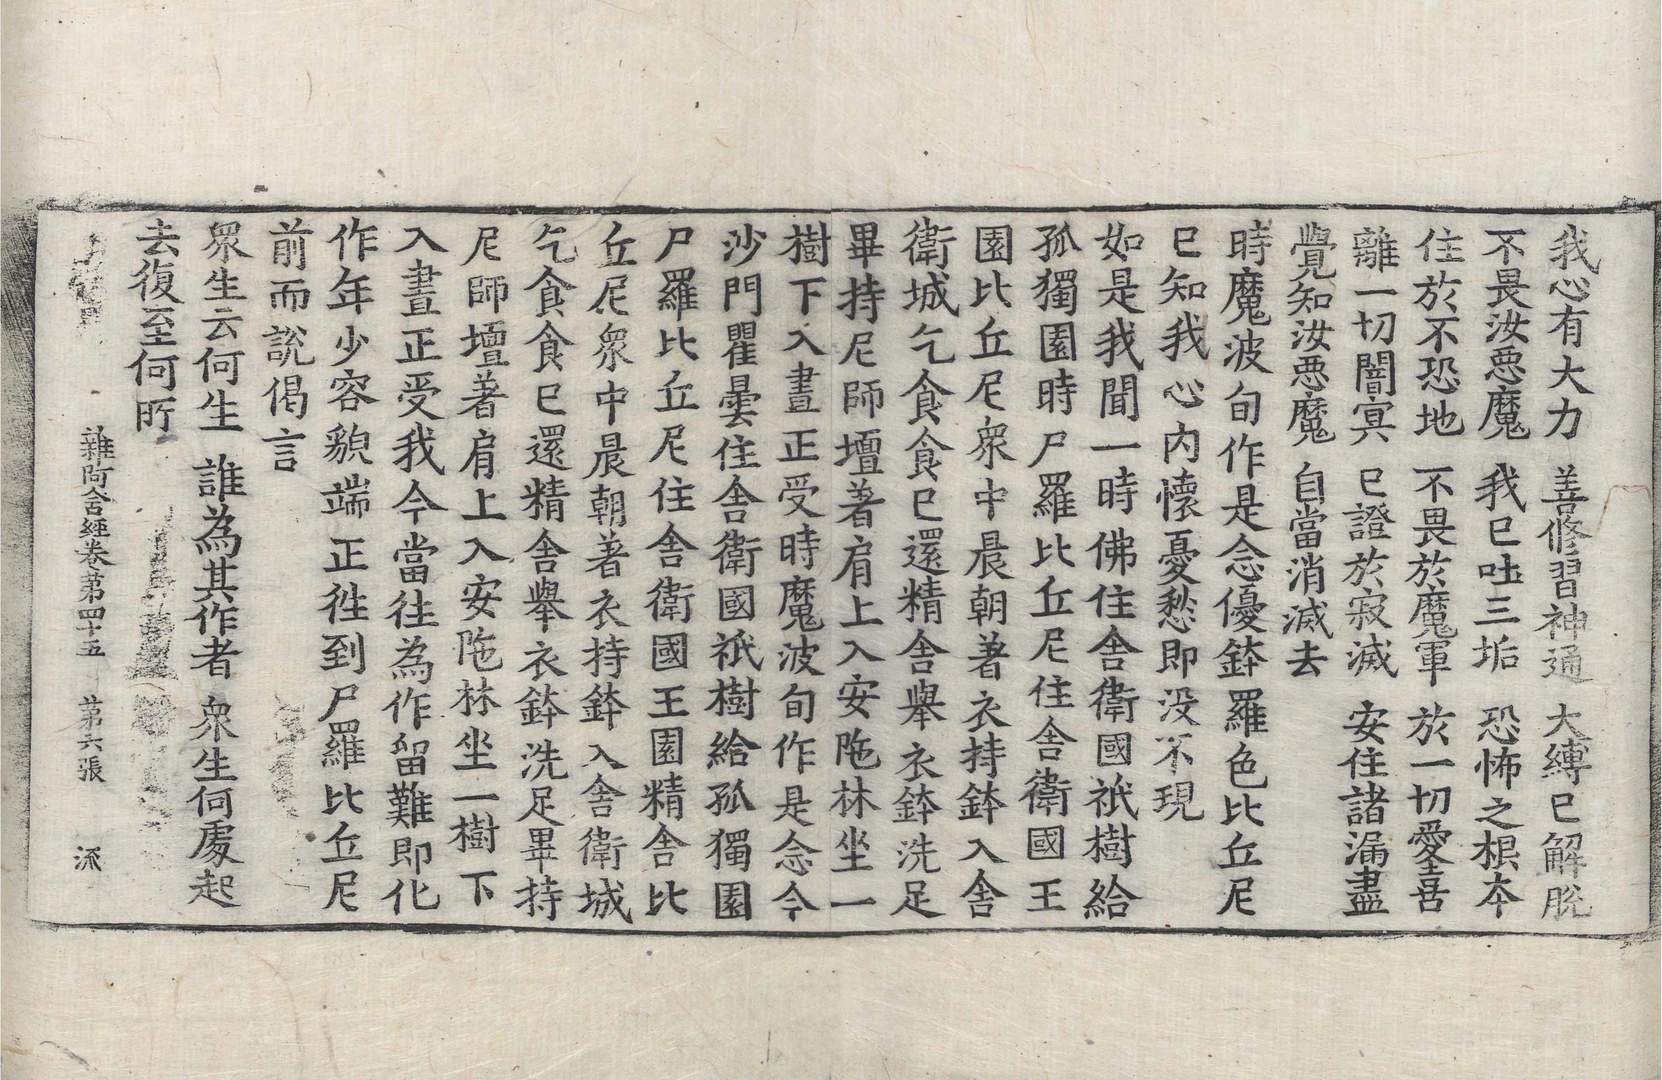 我心有大力　善修習神通　大縛已解脫
不畏汝惡魔　我已吐三垢　恐怖之根本
住於不恐地　不畏於魔軍　於一切愛喜
離一切闇冥　已證於寂滅　安住諸漏盡
覺知汝惡魔　自當消滅去
時魔波旬作是念優鉢羅色比丘尼
已知我心內懷憂愁即沒不現
如是我聞一時佛住舍衛國祇樹給
孤獨園時尸羅比丘尼住舍衛國王
園比丘尼衆中晨朝著衣持鉢入舍
衛城乞食食已還精舍舉衣鉢洗足
畢持尼師壇著肩上入安陁林坐一
樹下入晝正受時魔波旬作是念今
沙門瞿曇住舍衛國祇樹給孤獨園
尸羅比丘尼住舍衛國王園精舍比
丘尼衆中晨朝著衣持鉢入舍衛城
乞食食已還精舍舉衣鉢洗足畢持
尼師壇著肩上入安陁林坐一樹下
入晝正受我今當往為作留難即化
作年少容貌端正往到尸羅比丘尼
前而說偈言
衆生云何生　誰為其作者　衆生何處起
去復至何所
雜阿含經卷第四十五　第六張　流